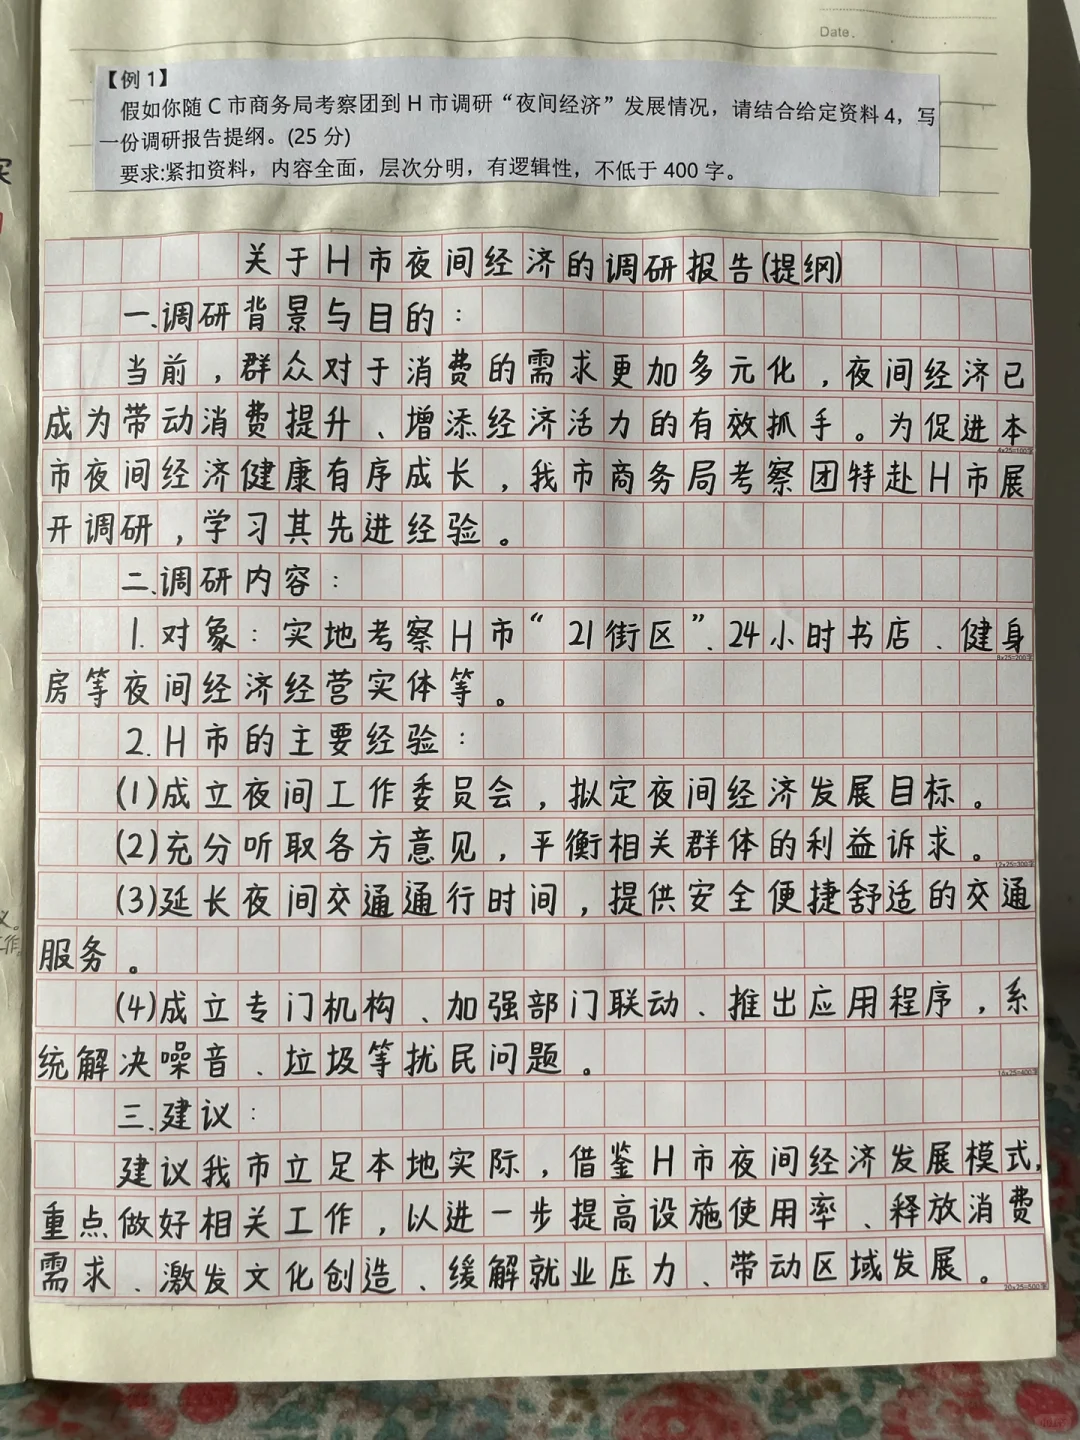 Date.
【例 1】
假如你随 C 市商务局考察团到 H 市调研“夜间经济”发展情况，请结合给定资料 4，写
一份调研报告提纲。(25 分)
要求:紧扣资料，内容全面，层次分明，有逻辑性，不低于 400 字。
关于H市夜间经济的调研报告(提纲)
一、调研背景与目的：
当前，群众对于消费的需求更加多元化，夜间经济已
成为带动消费提升、增添经济活力的有效抓手。为促进本
4x25=100字
市夜间经济健康有序成长，我市商务局考察团特赴H市展
开调研，学习其先进经验。
二、调研内容：
1.对象：实地考察H市“21街区”、24小时书店、健身
8x25=200字
房等夜间经济经营实体等。
2.H市的主要经验：
(1)成立夜间工作委员会，拟定夜间经济发展目标。
(2)充分听取各方意见，平衡相关群体的利益诉求。
12x25=300字
(3)延长夜间交通通行时间，提供安全便捷舒适的交通
服务。
(4)成立专门机构、加强部门联动、推出应用程序，系
统解决噪音、垃圾等扰民问题。
16x25=400字
三、建议：
建议我市立足本地实际，借鉴H市夜间经济发展模式，
重点做好相关工作，以进一步提高设施使用率、释放消费
需求、激发文化创造、缓解就业压力、带动区域发展。
20x25=500字